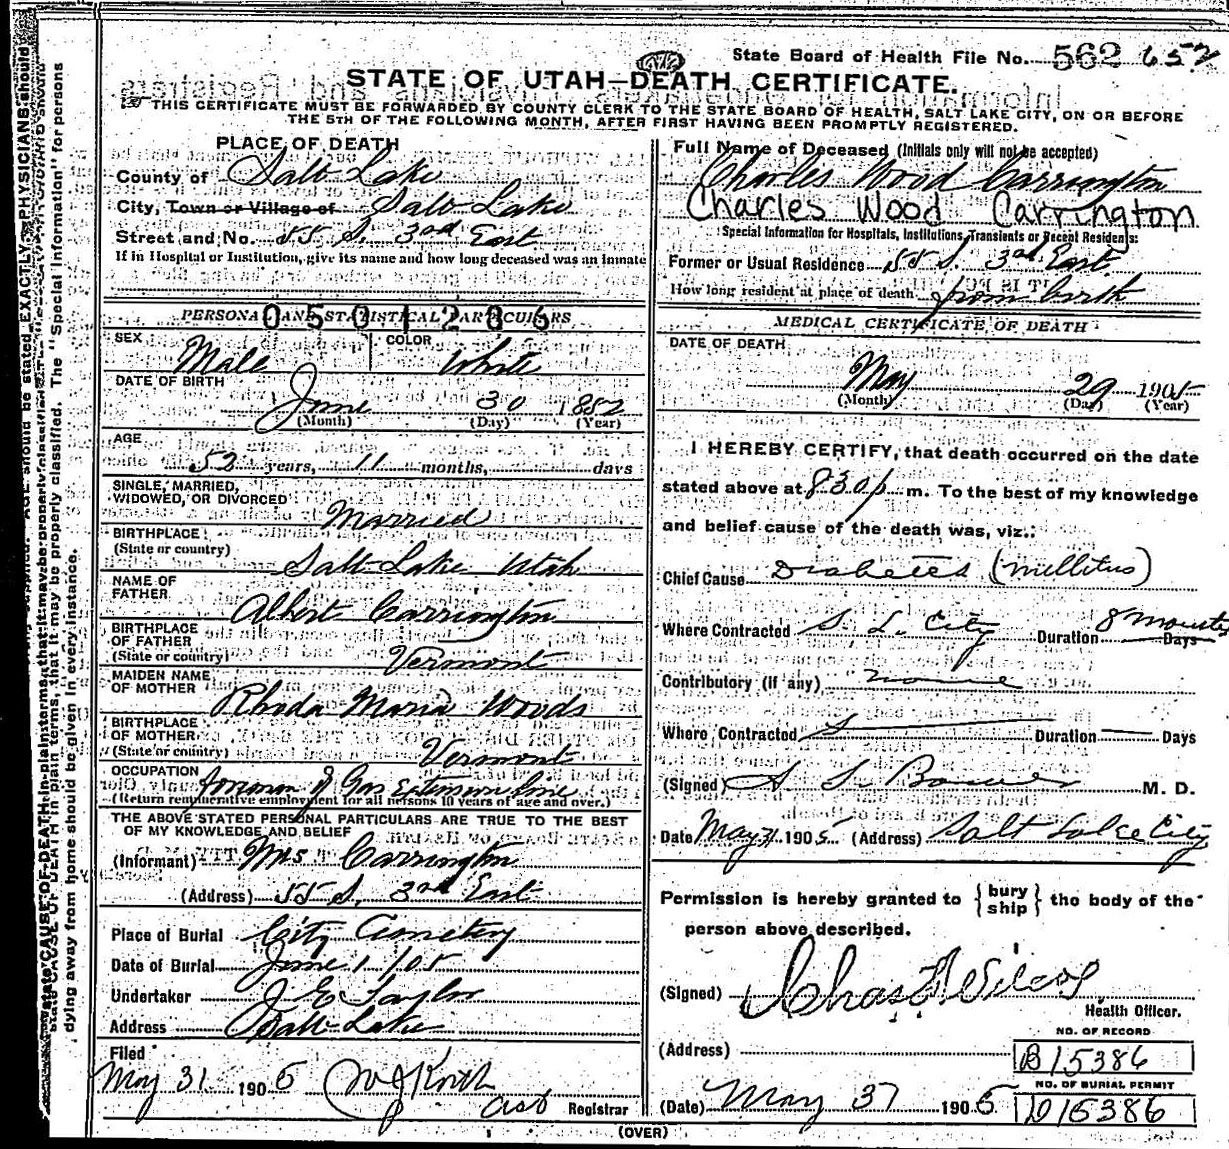 State Board of Health File No. 562 652
STATE OF UTAH—DEATH CERTIFICATE.
THIS CERTIFICATE MUST BE FORWARDED BY COUNTY CLERK TO THE STATE BOARD OF HEALTH, SALT LAKE CITY, ON OR BEFORE
THE 5TH OF THE FOLLOWING MONTH, AFTER FIRST HAVING BEEN PROMPTLY REGISTERED.
PLACE OF DEATH
County of Salt Lake
City, Town or Village of Salt Lake
Street and No. 55 S. 3rd East
If in Hospital or Institution, give its name and how long deceased was an inmate
0501206
PERSONAL AND STATISTICAL PARTICULARS
SEX Male COLOR White
DATE OF BIRTH
June 30 1852
(Month) (Day) (Year)
AGE
52 years, 11 months, days
SINGLE, MARRIED,
WIDOWED, OR DIVORCED
Married
BIRTHPLACE
(State or country)
Salt Lake Utah
NAME OF
FATHER
Albert Carrington
BIRTHPLACE
OF FATHER
(State or country)
Vermont
MAIDEN NAME
OF MOTHER
Rhoda Maria Woods
BIRTHPLACE
OF MOTHER
(State or country)
Vermont
OCCUPATION
Foreman of Gas Extension line
(Return remunerative employment for all persons 10 years of age and over.)
THE ABOVE STATED PERSONAL PARTICULARS ARE TRUE TO THE BEST
OF MY KNOWLEDGE AND BELIEF
(Informant) Mrs Carrington
(Address) 55 S. 3rd East
Place of Burial City Cemetery
Date of Burial June 1/05
Undertaker J E Taylor
Address Salt Lake
Filed
May 31 1905
asst Registrar
Full Name of Deceased (Initials only will not be accepted)
Charles Wood Carrington
Charles Wood Carrington
Special Information for Hospitals, Institutions, Transients or Recent Residents:
Former or Usual Residence 55 S. 3rd East
How long resident at place of death from birth
MEDICAL CERTIFICATE OF DEATH
DATE OF DEATH
May 29 1905
(Month) (Day) (Year)
I HEREBY CERTIFY, that death occurred on the date
stated above at 8 30 p m. To the best of my knowledge
and belief cause of the death was, viz.:
Chief Cause Diabetes (mellitus)
Where Contracted S. L. City Duration 8 months Days
Contributory (if any) none
Where Contracted Duration — Days
(Signed) M. D.
Date May 31 1905 (Address) Salt Lake City
Permission is hereby granted to {bury
ship} the body of the
person above described.
(Signed)
Health Officer.
NO. OF RECORD
(Address) B15386
NO. OF BURIAL PERMIT
(Date) May 31 1905 D15386
(OVER)
dying away from home should be given in every instance.